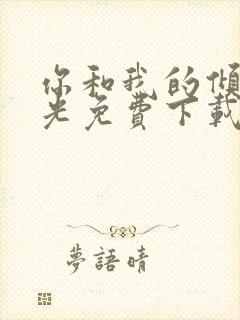 你和我的傾
光免費下載
夢語晴